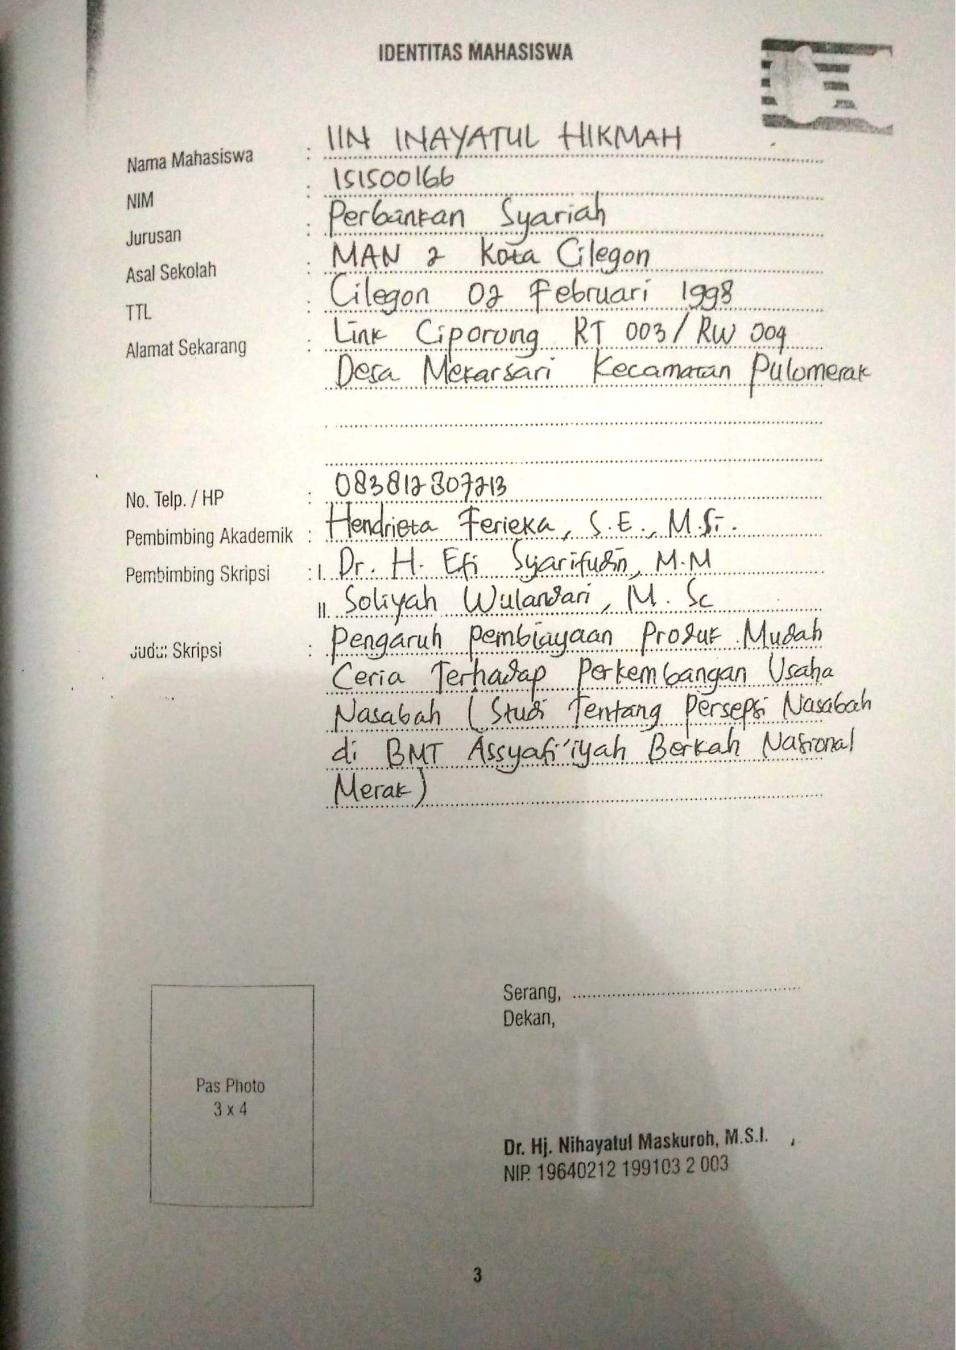 IDENTITAS MAHASISWA
Nama Mahasiswa : IIN INAYATUL HIKMAH
NIM : 151500166
Jurusan : Perbankan Syariah
Asal Sekolah : MAN 2 Kota Cilegon
TTL : Cilegon 02 Februari 1998
Alamat Sekarang : Link Ciporong RT 003/RW 004
Desa Mekarsari Kecamatan Pulomerak
No. Telp. / HP : 083812807213
Pembimbing Akademik : Hendrieta Ferieka, S.E., M.Si.
Pembimbing Skripsi : I. Dr. H. Efi Syarifudin, M.M
II. Soliyah Wulandari, M. Sc
Judul Skripsi : Pengaruh Pembiayaan Produk Mudah
Ceria Terhadap Perkembangan Usaha
Nasabah (Studi Tentang Persepsi Nasabah
di BMT Assyafi'iyah Berkah Nasional
Merak)
Serang, ........................
Dekan,
Pas Photo
3 x 4
Dr. Hj. Nihayatul Maskuroh, M.S.I.
NIP. 19640212 199103 2 003
3